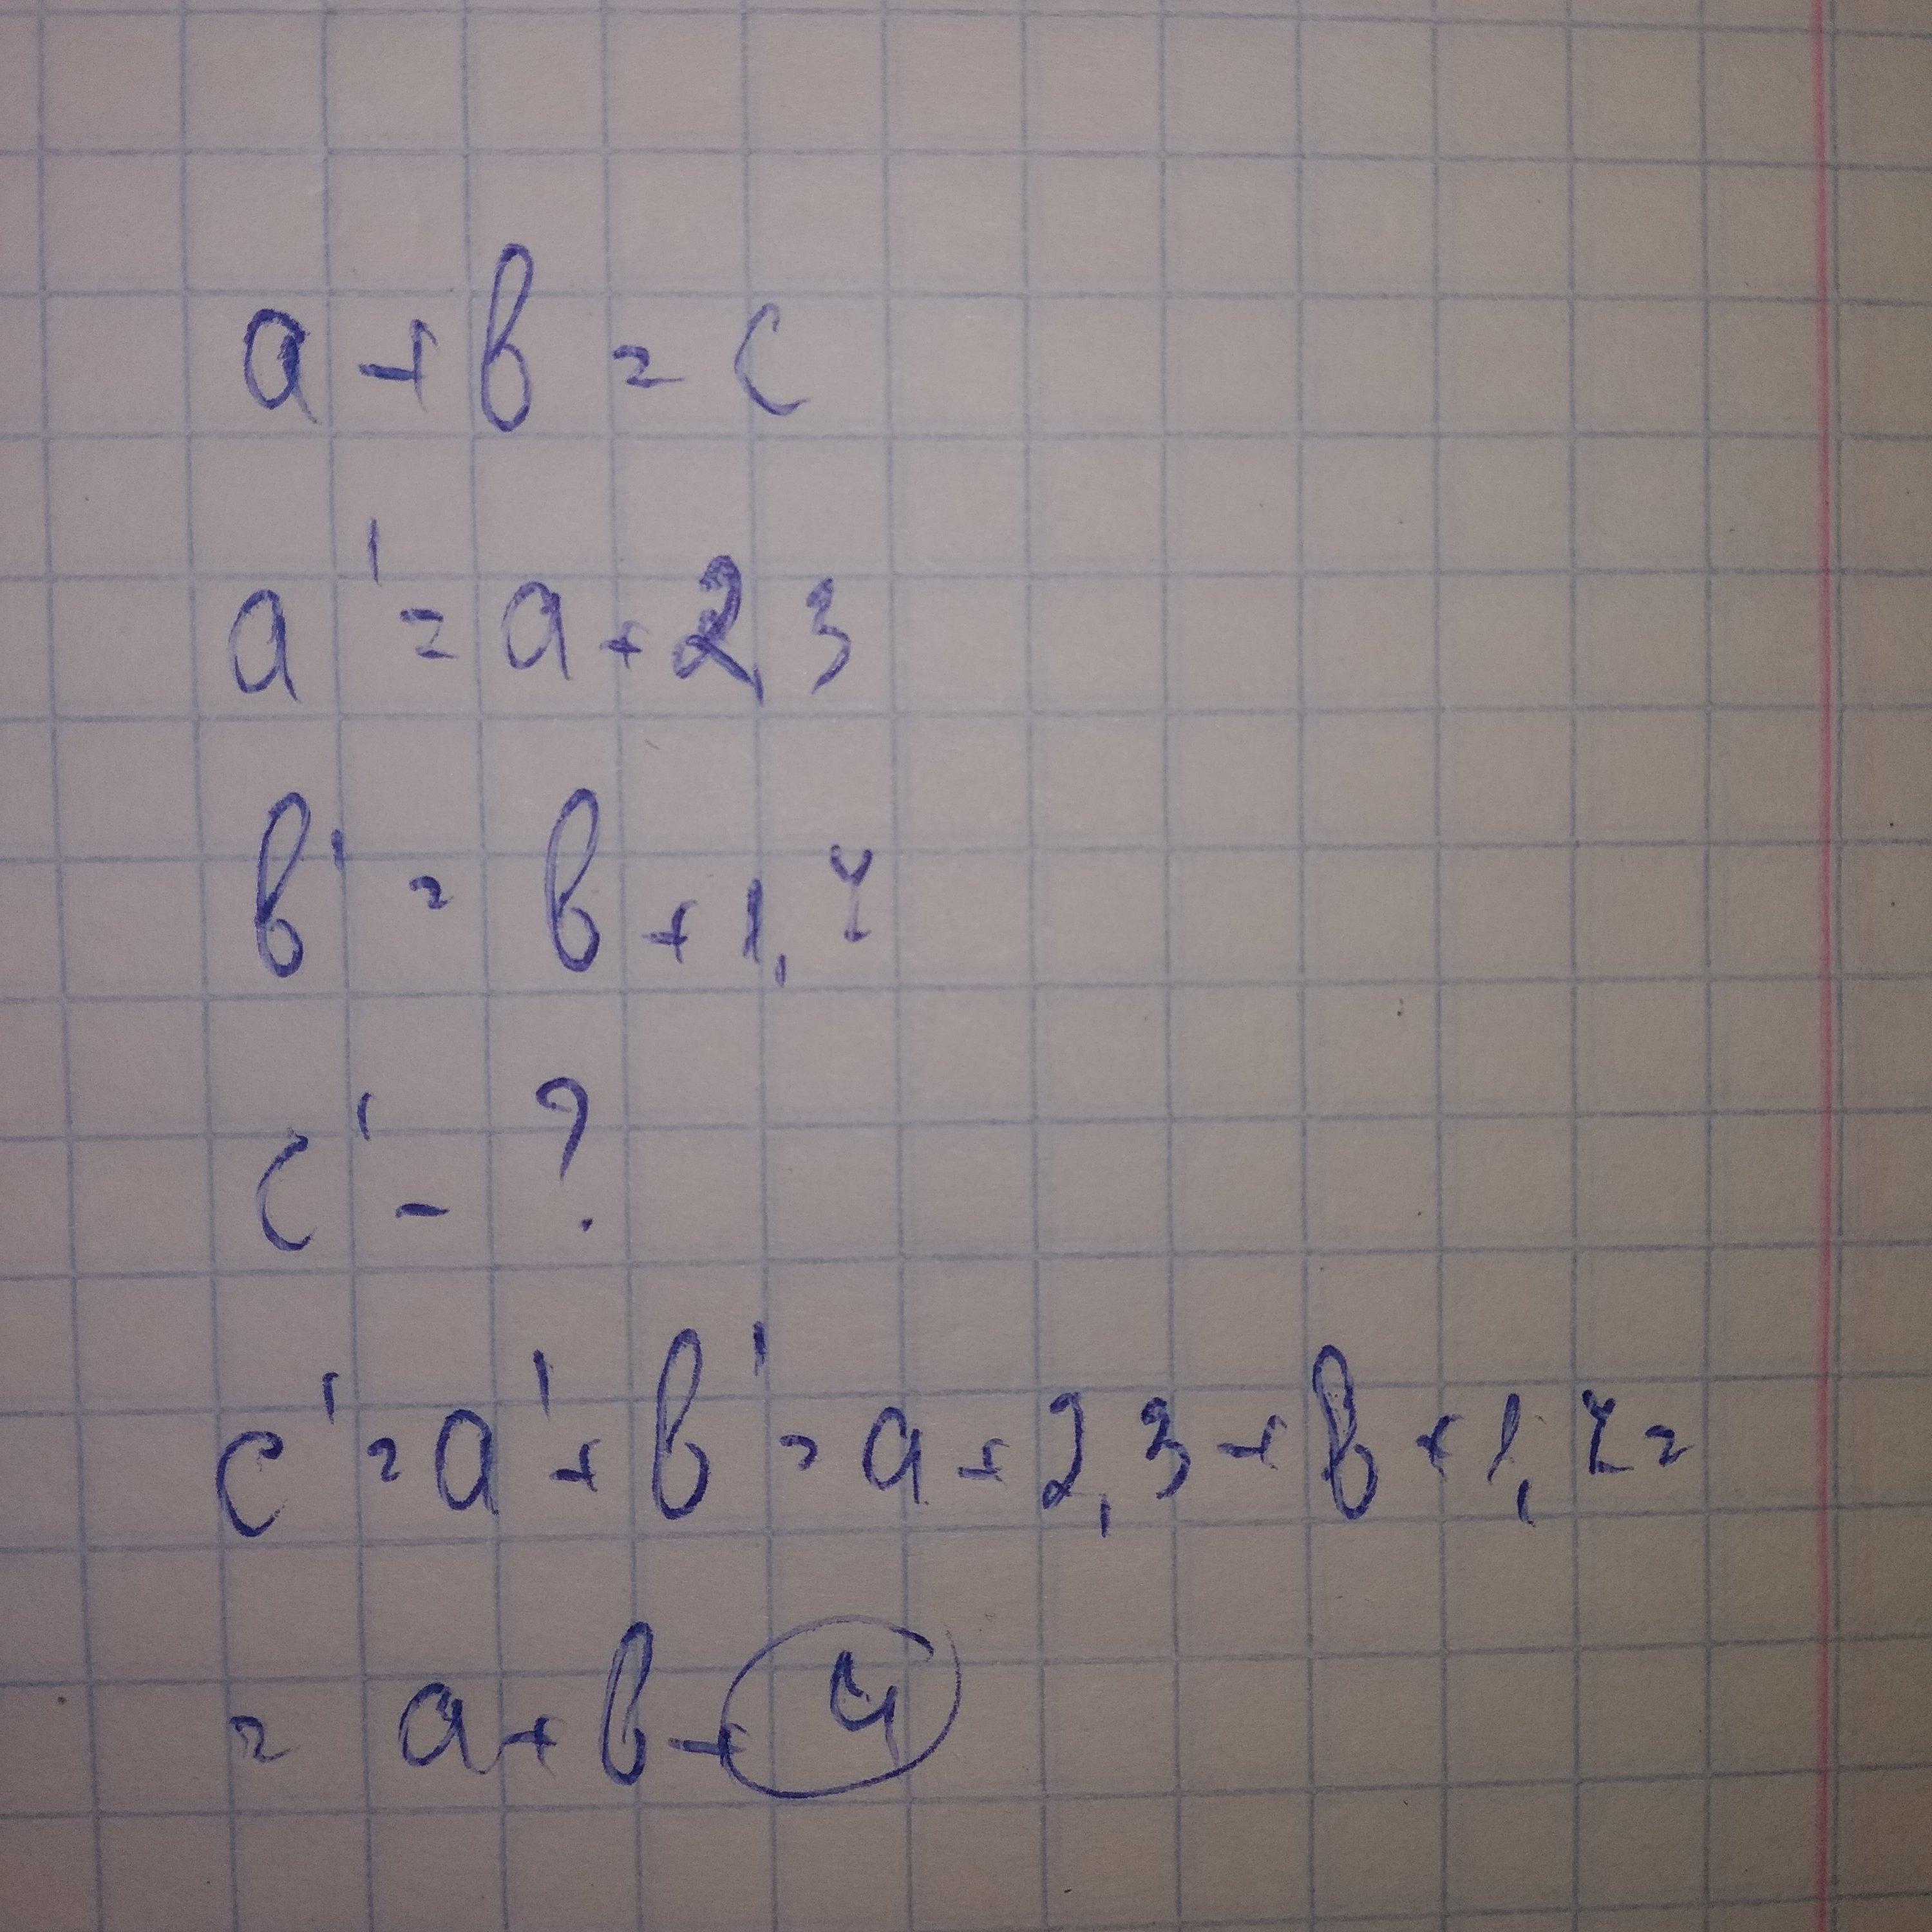 a + b = c
a' = a + 2,3
b' = b + 1,7
c' - ?
c' = a' + b' = a + 2,3 + b + 1,7 =
= a + b + 4